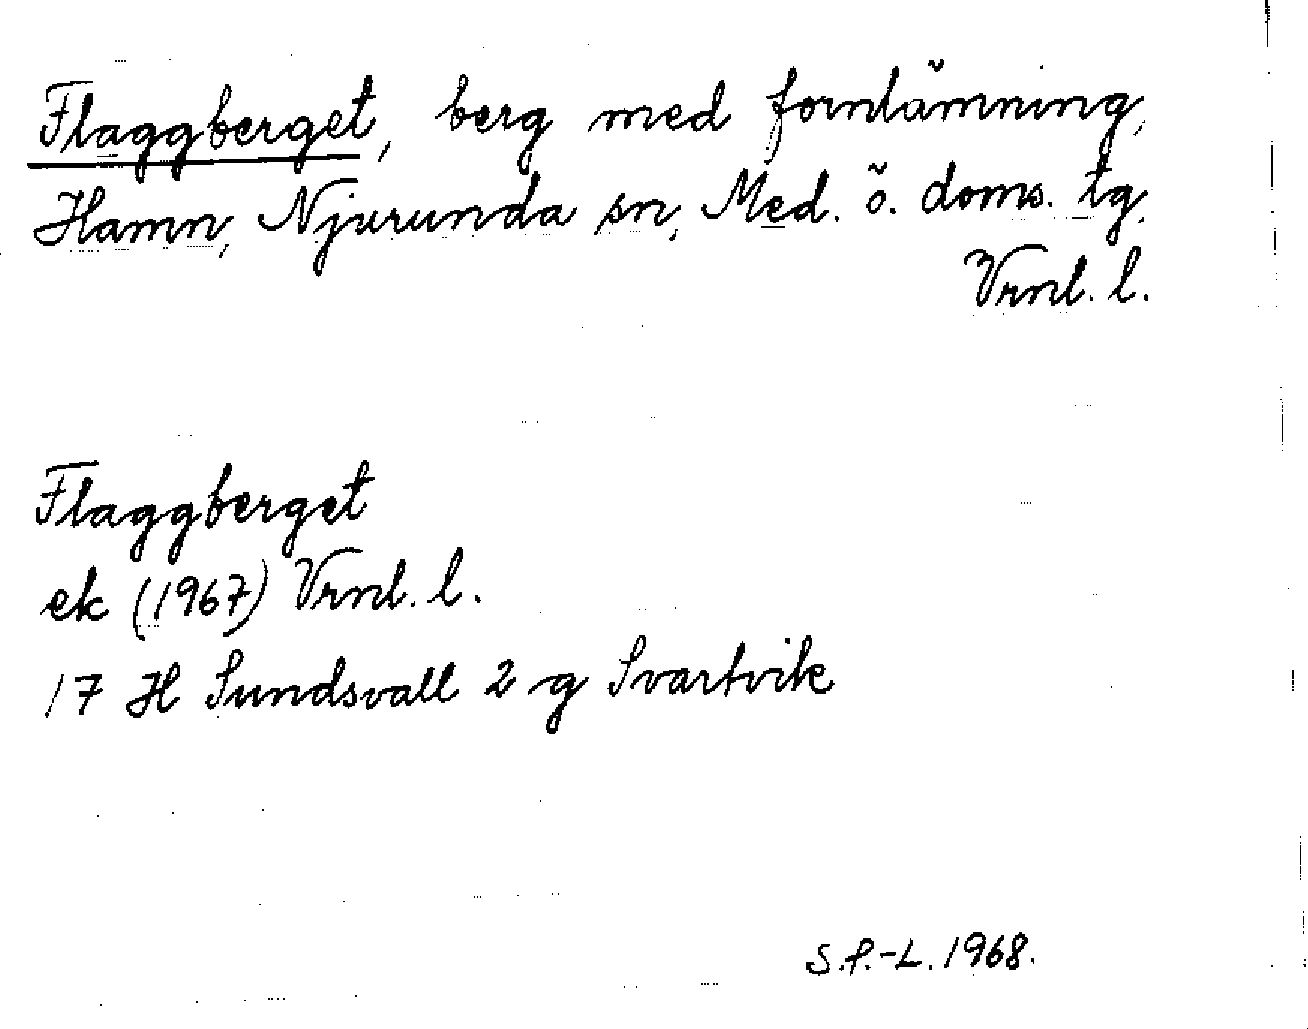 Flaggberget, berg med fornlämning,
Hamn, Njurunda sn, Med. ö. doms. tg,
Vrnl. l.
Flaggberget
ek (1967) Vrnl. l.
17 H Sundsvall 2 g Svartvik
S.P.-L. 1968.